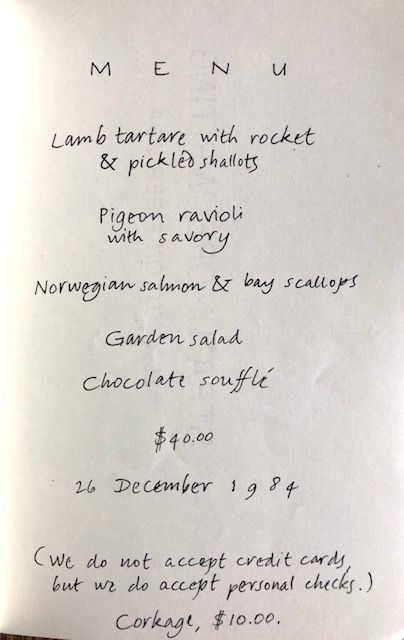 MENU
Lamb tartare with rocket
& pickled shallots
Pigeon ravioli
with savory
Norwegian salmon & bay scallops
Garden salad
Chocolate soufflé
$40.00
26 December 1984
(We do not accept credit cards,
but we do accept personal checks.)
Corkage, $10.00.